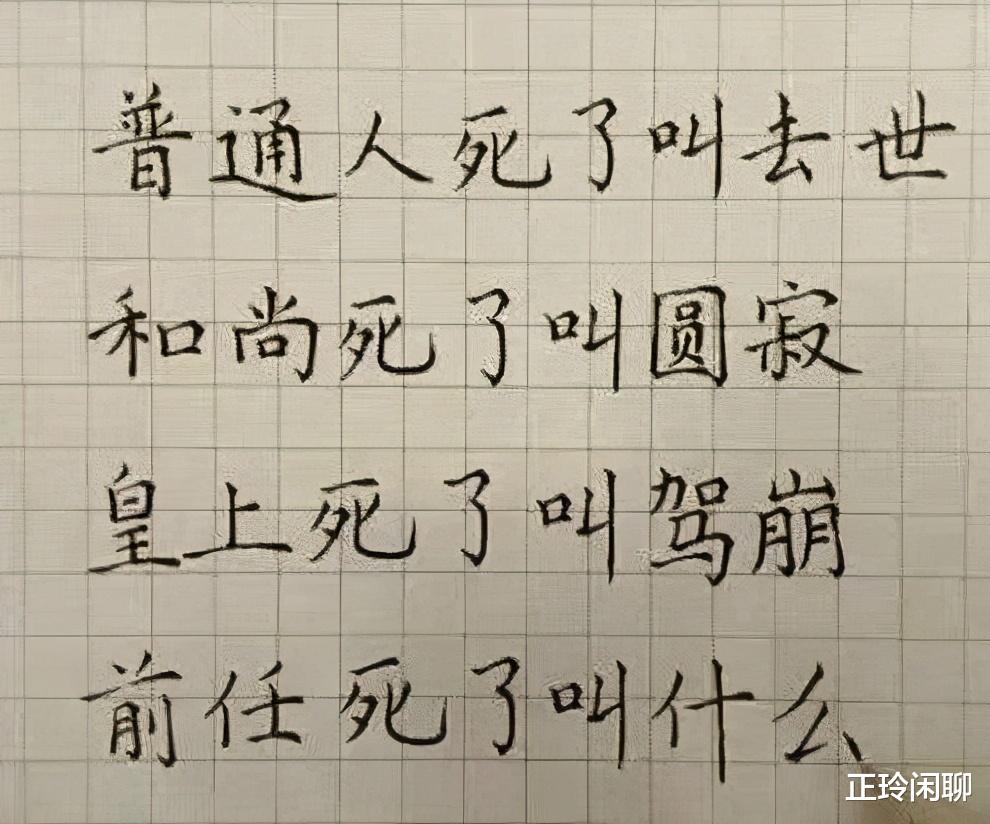 普通人死了叫去世
和尚死了叫圆寂
皇上死了叫驾崩
前任死了叫什么
正玲闲聊